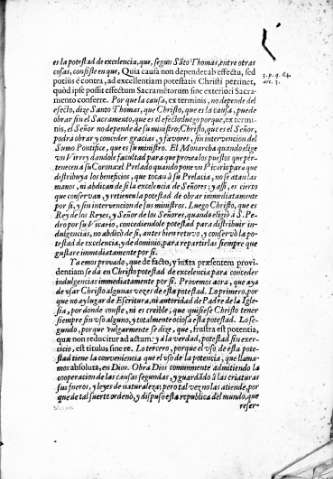 es la potestad de excelencia, que, segun Sãto Thomas, entre otras
cosas, consiste en que, Quia causa non dependet ab effectu, sed
potiùs è contra, ad excellentiam potestatis Christi pertinet,
quòd ipse possit effectum Sacramētorum sine exteriori Sacra-
mento conferre. Por que la causa, ex terminis, no depende del
efecto, dize Santo Thomas, que Christo, que es la causa, puede
obrar sin el Sacramento, que es el efecto: luego porque, ex termi-
nis, el Señor no depende de su ministro; Christo, que es el Señor,
podrà obrar y conceder gracias, y favores, sin intervencion del
Sumo Pontifice, que es su ministro. El Monarcha quando elige
un Virrey dandole facultad para que provea los puestos que per-
tenecen à su Corona: el Prelado quando pone un Vicario para que
distribuya los beneficios, que tocan à su Prelacia, no se atan las
manos, ni abdican de sì la excelencia de Señores: y assi, es cierto
que conservan, y retienen la potestad de obrar immediatamente
por si, y sin intervencion de sus ministros. Luego Christo, que es
Rey de los Reyes, y Señor de los Señores, quando eligiò à S. Pe-
dro por su Vicario, concediendole potestad para distribuir in-
dulgencias, no abdicò de si, antes bien retuvo, y conservò la po-
testad de excelencia, y de dominio, para repartirlas siempre que
gustare immediatamente por si.
Ya emos provado, que de facto, y iuxta præsentem provi-
dentiam se da en Christo potestad de excelencia para conceder
indulgencias immediatamente por si. Provemos aora, que aya
de usar Christo algunas vezes de esta potestad. Lo primero, por
que no ay lugar de Escritura, ni autoridad de Padre de la Igle-
sia, por donde conste, ni es creible, que quisiesse Christo tener
siempre sin uso alguno, y totalmente ociosa esta potestad. Lo se-
gundo, por que vulgarmente se dize, que, frustra est potentia,
quæ non reducitur ad actum: y à la verdad, potestad sin exer-
cicio, est titulus sine re. Lo tercero, porque el uso de esta pote-
stad tiene la conveniencia que el uso de la potencia, que llama-
mos absoluta, en Dios. Obra Dios comunmente admitiendo la
cooperacion de las causas segundas, y guardãdo à las criaturas
sus fueros, y leyes de naturaleza; pero tal vez no las atiende, por
que de tal suerte ordenò, y dispuso esta republica del mundo, que
reser-
3. p. q. 64.
art. 3.